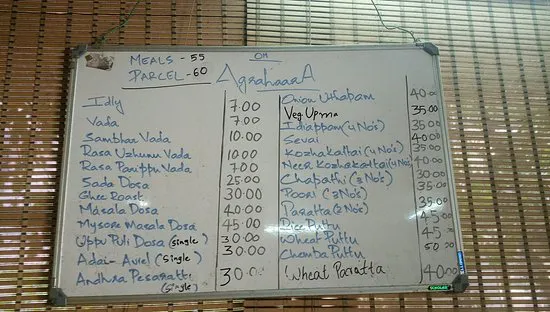 MEALS - 55
PARCEL - 60
OM
AgrahaaraA
Idly 7.00
Vada 7.00
Sambhar Vada 10.00
Rasa Uzhunnu Vada 10.00
Rasa Parippu Vada 7.00
Sada Dosa 25.00
Ghee Roast 30.00
Masala Dosa 40.00
Mysore Masala Dosa 45.00
Uppu Puli Dosa (single) 30.00
Adai-Aviel (single) 30.00
Andhra Pesarattu (single) 30.00
Onion Uthapam 40.00
Veg Upma 35.00
Idiappam (4 No's) 35.00
Sevai 40.00
Kozhakattai (4 No's) 35.00
Neer Kozhakattai (4 No's) 40.00
Chapathi (3 No's) 30.00
Poori (3 No's) 35.00
Paratta (2 No's) 35.00
Rice Puttu 45.00
Wheat Puttu 45.00
Chemba Puttu 50.00
Wheat Paratta 40.00
SCHOLAR